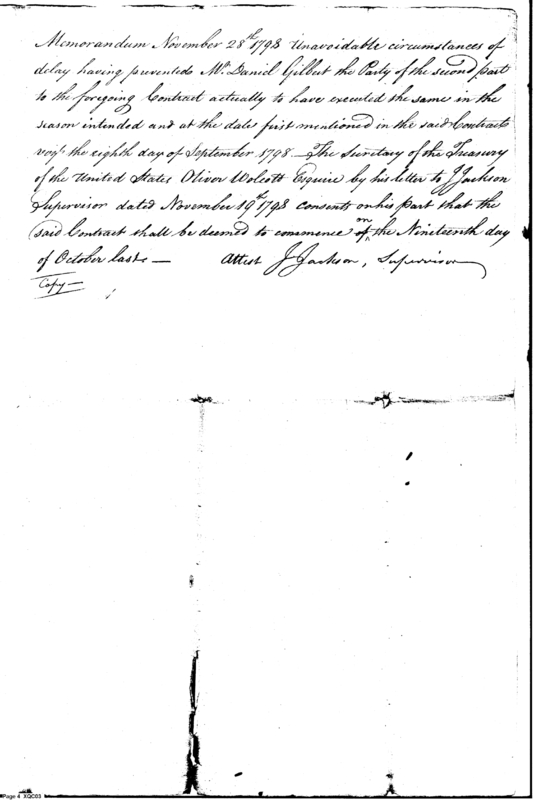 Memorandum November 28th 1798 Unavoidable circumstances of
delay having prevented Mr. Daniel Gilbert the Party of the second part
to the foregoing Contract actually to have executed the same in the
season intended and at the date first mentioned in the said Contract
vizt. the eighth day of September 1798 — The Secretary of the Treasury
of the United States Oliver Wolcott Esquire by his letter to J Jackson
Supervisor dated November 19th 1798 consents on his part that the
said Contract shall be deemed to commence on the Nineteenth day
of October last. — Attest J Jackson, Supervisor
Copy —
Page 4 XQC03